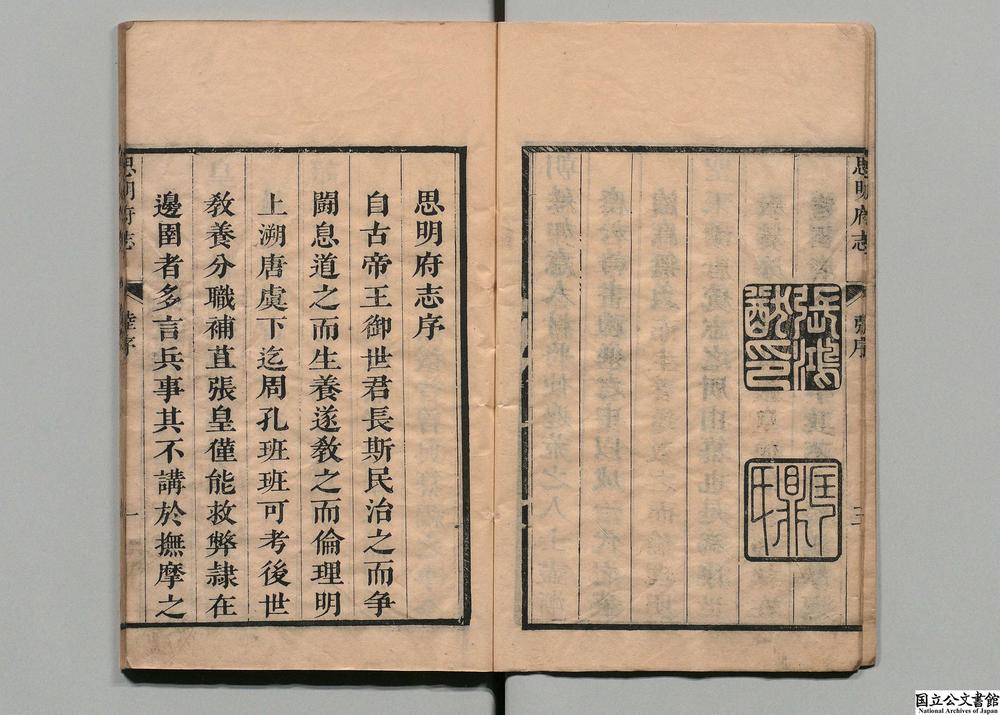 思明府志
張序
三
張鴻
猷印
思明府志序
自古帝王御世君長斯民治之而爭
鬪息道之而生養遂敎之而倫理明
上溯唐虞下迄周孔班班可考後世
敎養分職補苴張皇僅能救弊隷在
邊圉者多言兵事其不講於撫摩之
思明府志
陸序
一
国立公文書館
National Archives of Japan